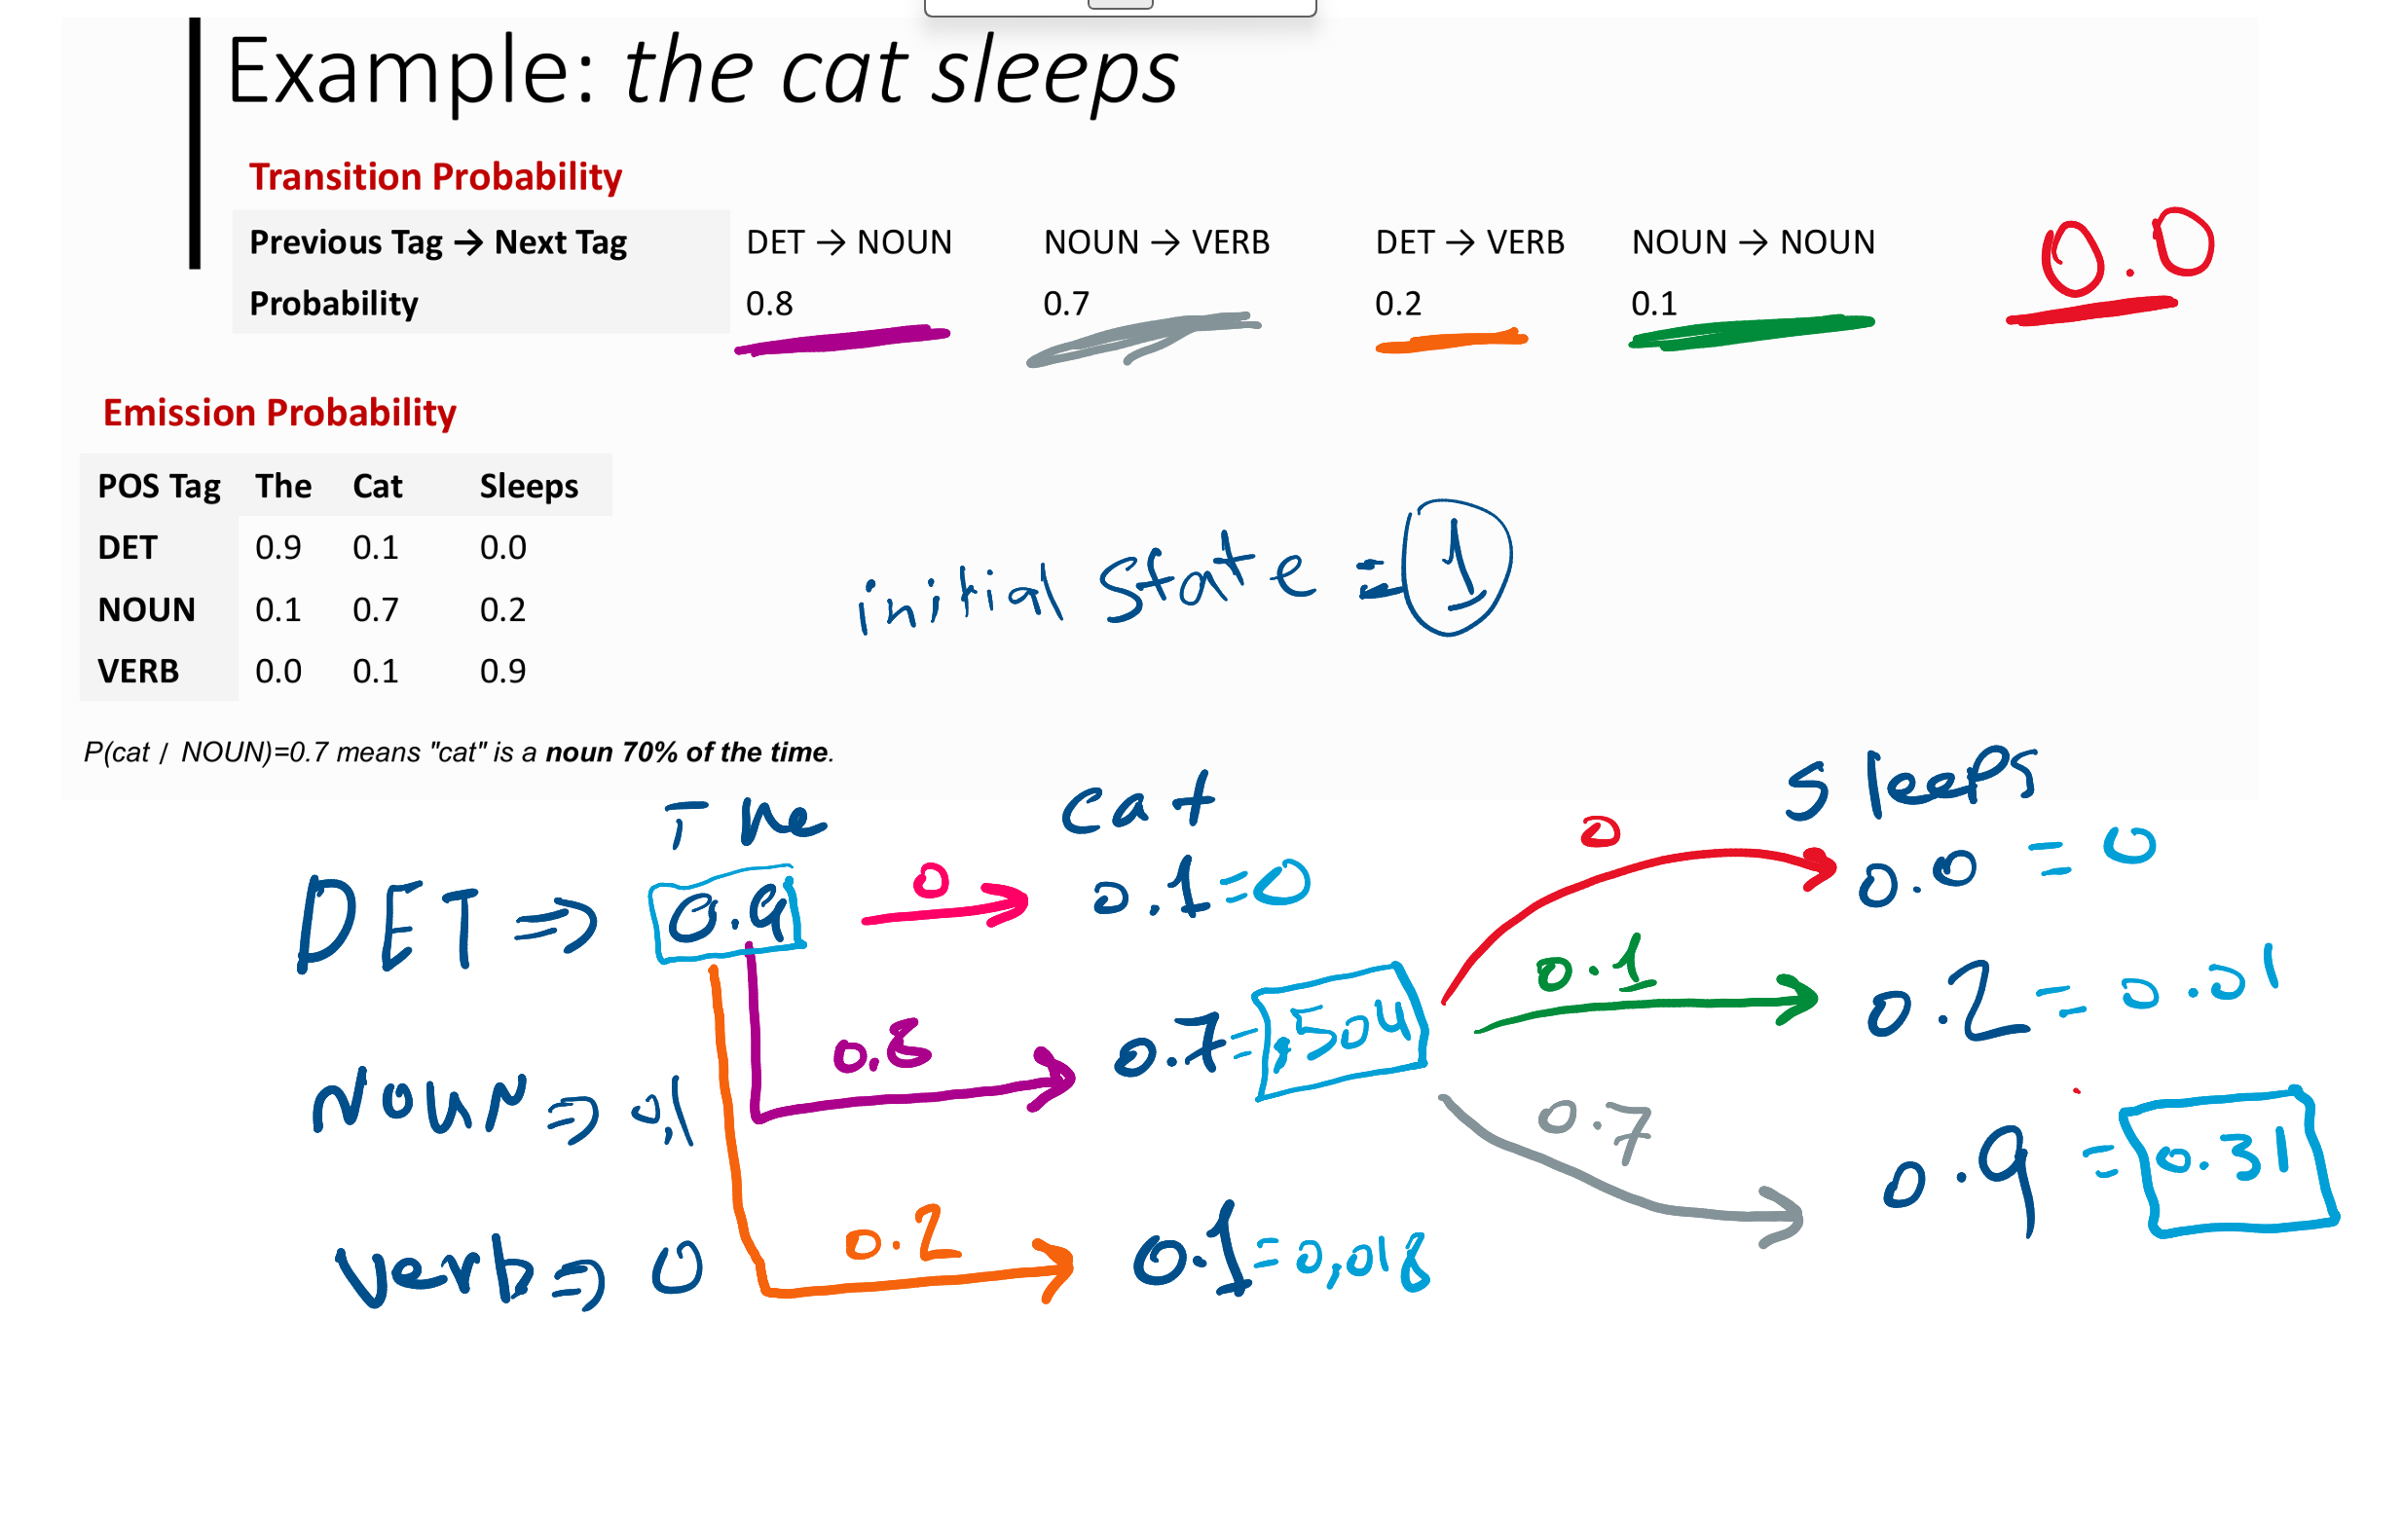 Example: the cat sleeps
Transition Probability
Previous Tag → Next Tag DET → NOUN NOUN → VERB DET → VERB NOUN → NOUN 0.0
Probability 0.8 0.7 0.2 0.1
Emission Probability
POS Tag The Cat Sleeps
DET 0.9 0.1 0.0
NOUN 0.1 0.7 0.2
VERB 0.0 0.1 0.9
initial State = 1
P(cat / NOUN)=0.7 means "cat" is a noun 70% of the time.
The cat Sleeps
DET ⇒ 0.9 0 0.1 = 0 0 0.0 = 0
Noun ⇒ 0,1 0.8 0.7 = ,504 0.1 0.2 = 0.01
Verb ⇒ 0 0.2 0.1 = 0,018 0.7 0.9 = 0.31